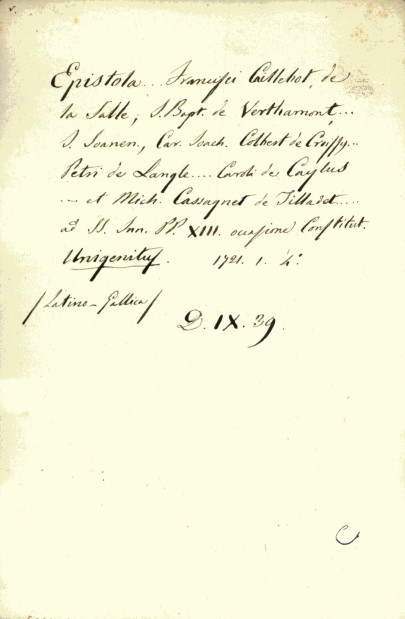 Epistola... Francisci Caillebot, de
la Salle, J. Bapt. de Verthamont...
J. Soanen, Car. Joach. Colbert de Croissy...
Petri de Langle.... Caroli de Caylus
— et Mich. Cassagnet de Tilladet....
ad SS. Inn. PP. XIII. occasione Constitut.
Unigenitus. 1721. 1. 4°.
/Latino-Gallica/
D. IX. 39.